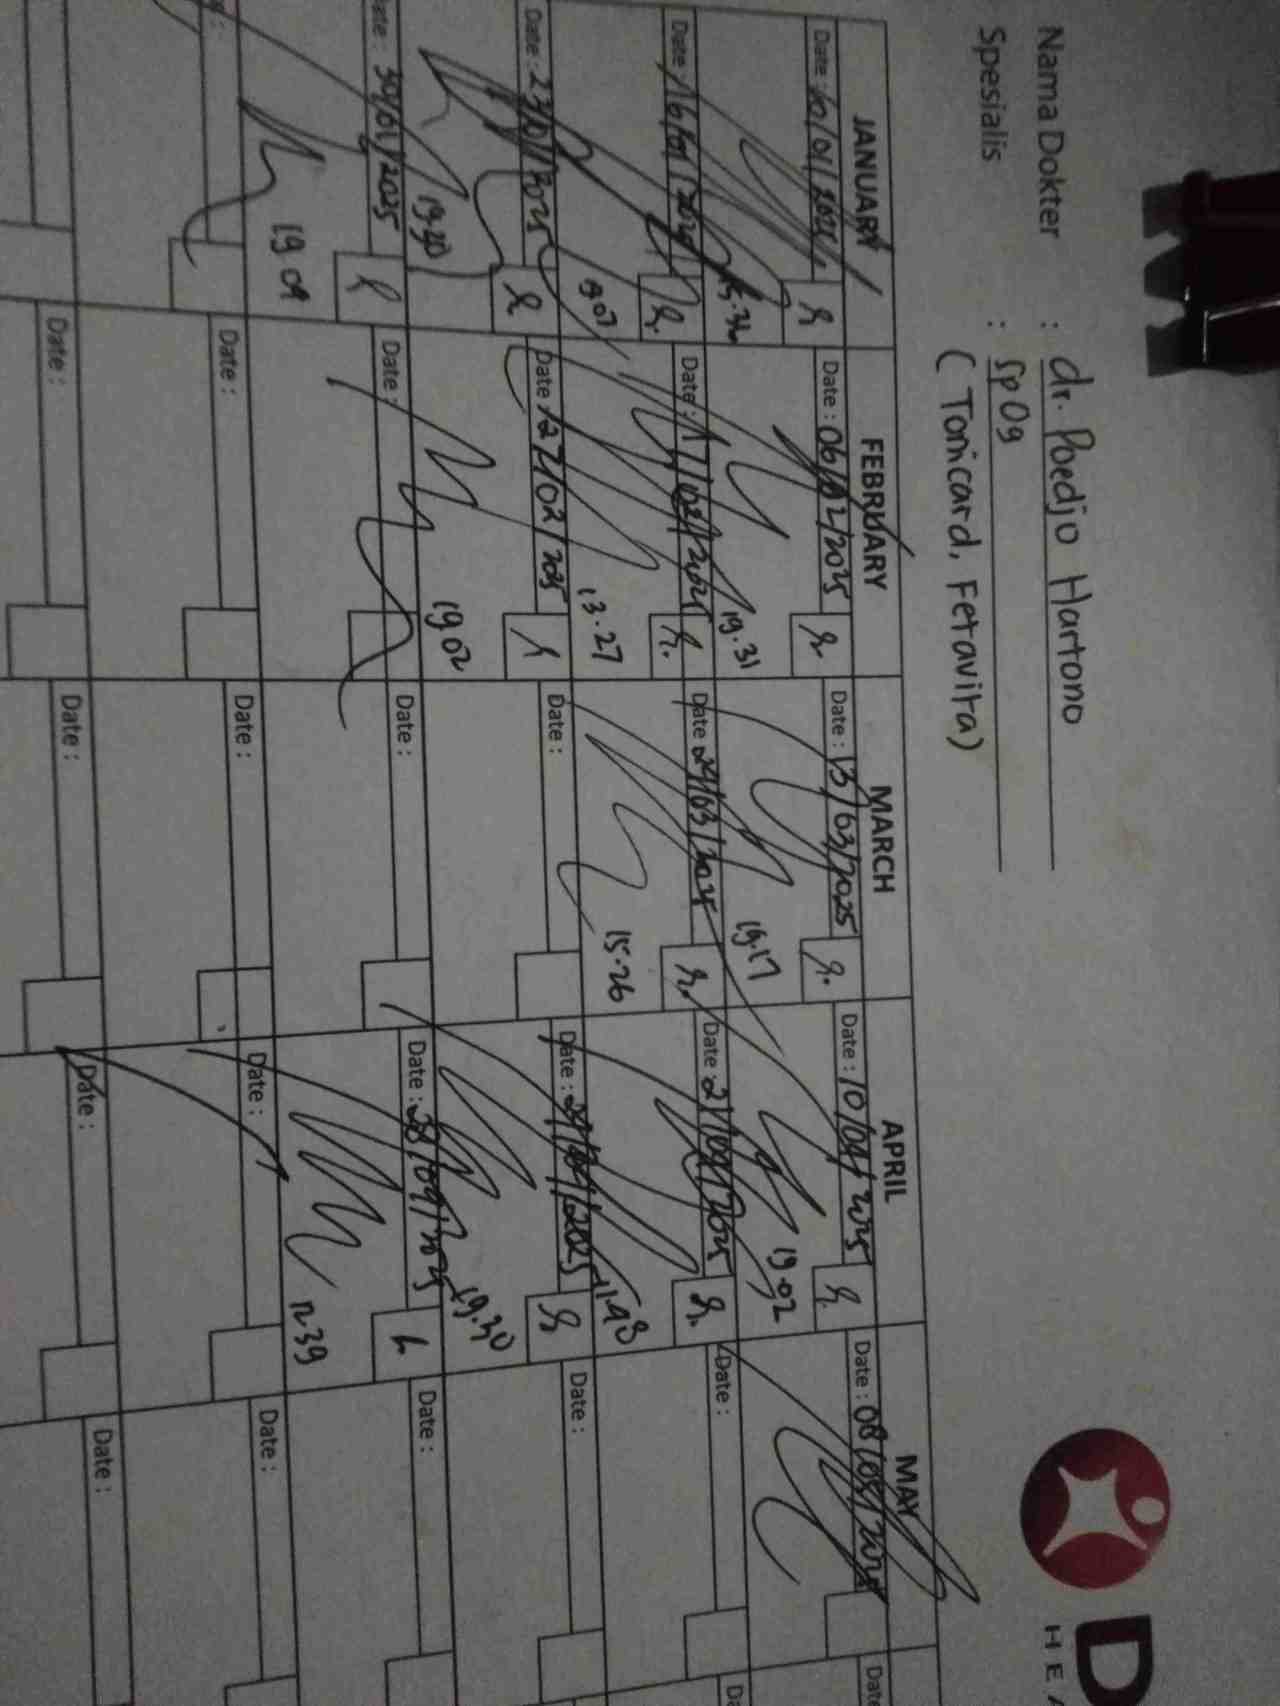 Nama Dokter : dr. Poedjo Hartono
Spesialis : Sp Og
( Tonicard, Fetavita)
D
HEA
JANUARY FEBRUARY MARCH APRIL MAY
Date : 10/01/2025 Date : 06/02/2025 Date : 13/03/2025 Date : 10/04/2025 Date : 08/05/2025 Date
19.31 19.17 19.02
Date : 16/01/2025 Date : 17/02/2025 Date : 24/03/2025 Date : 21/04/2025 Date : Da
19.07 13.27 15.26 11.48
Date : 23/01/2025 Date : 27/02/2025 Date : Date : 24/04/2025 Date :
19.20 19.02 19.30
Date : 30/01/2025 Date : Date : Date : 28/04/2025 Date :
19.09 12.39
Date : Date : Date : Date :
Date : Date : Date : Date :